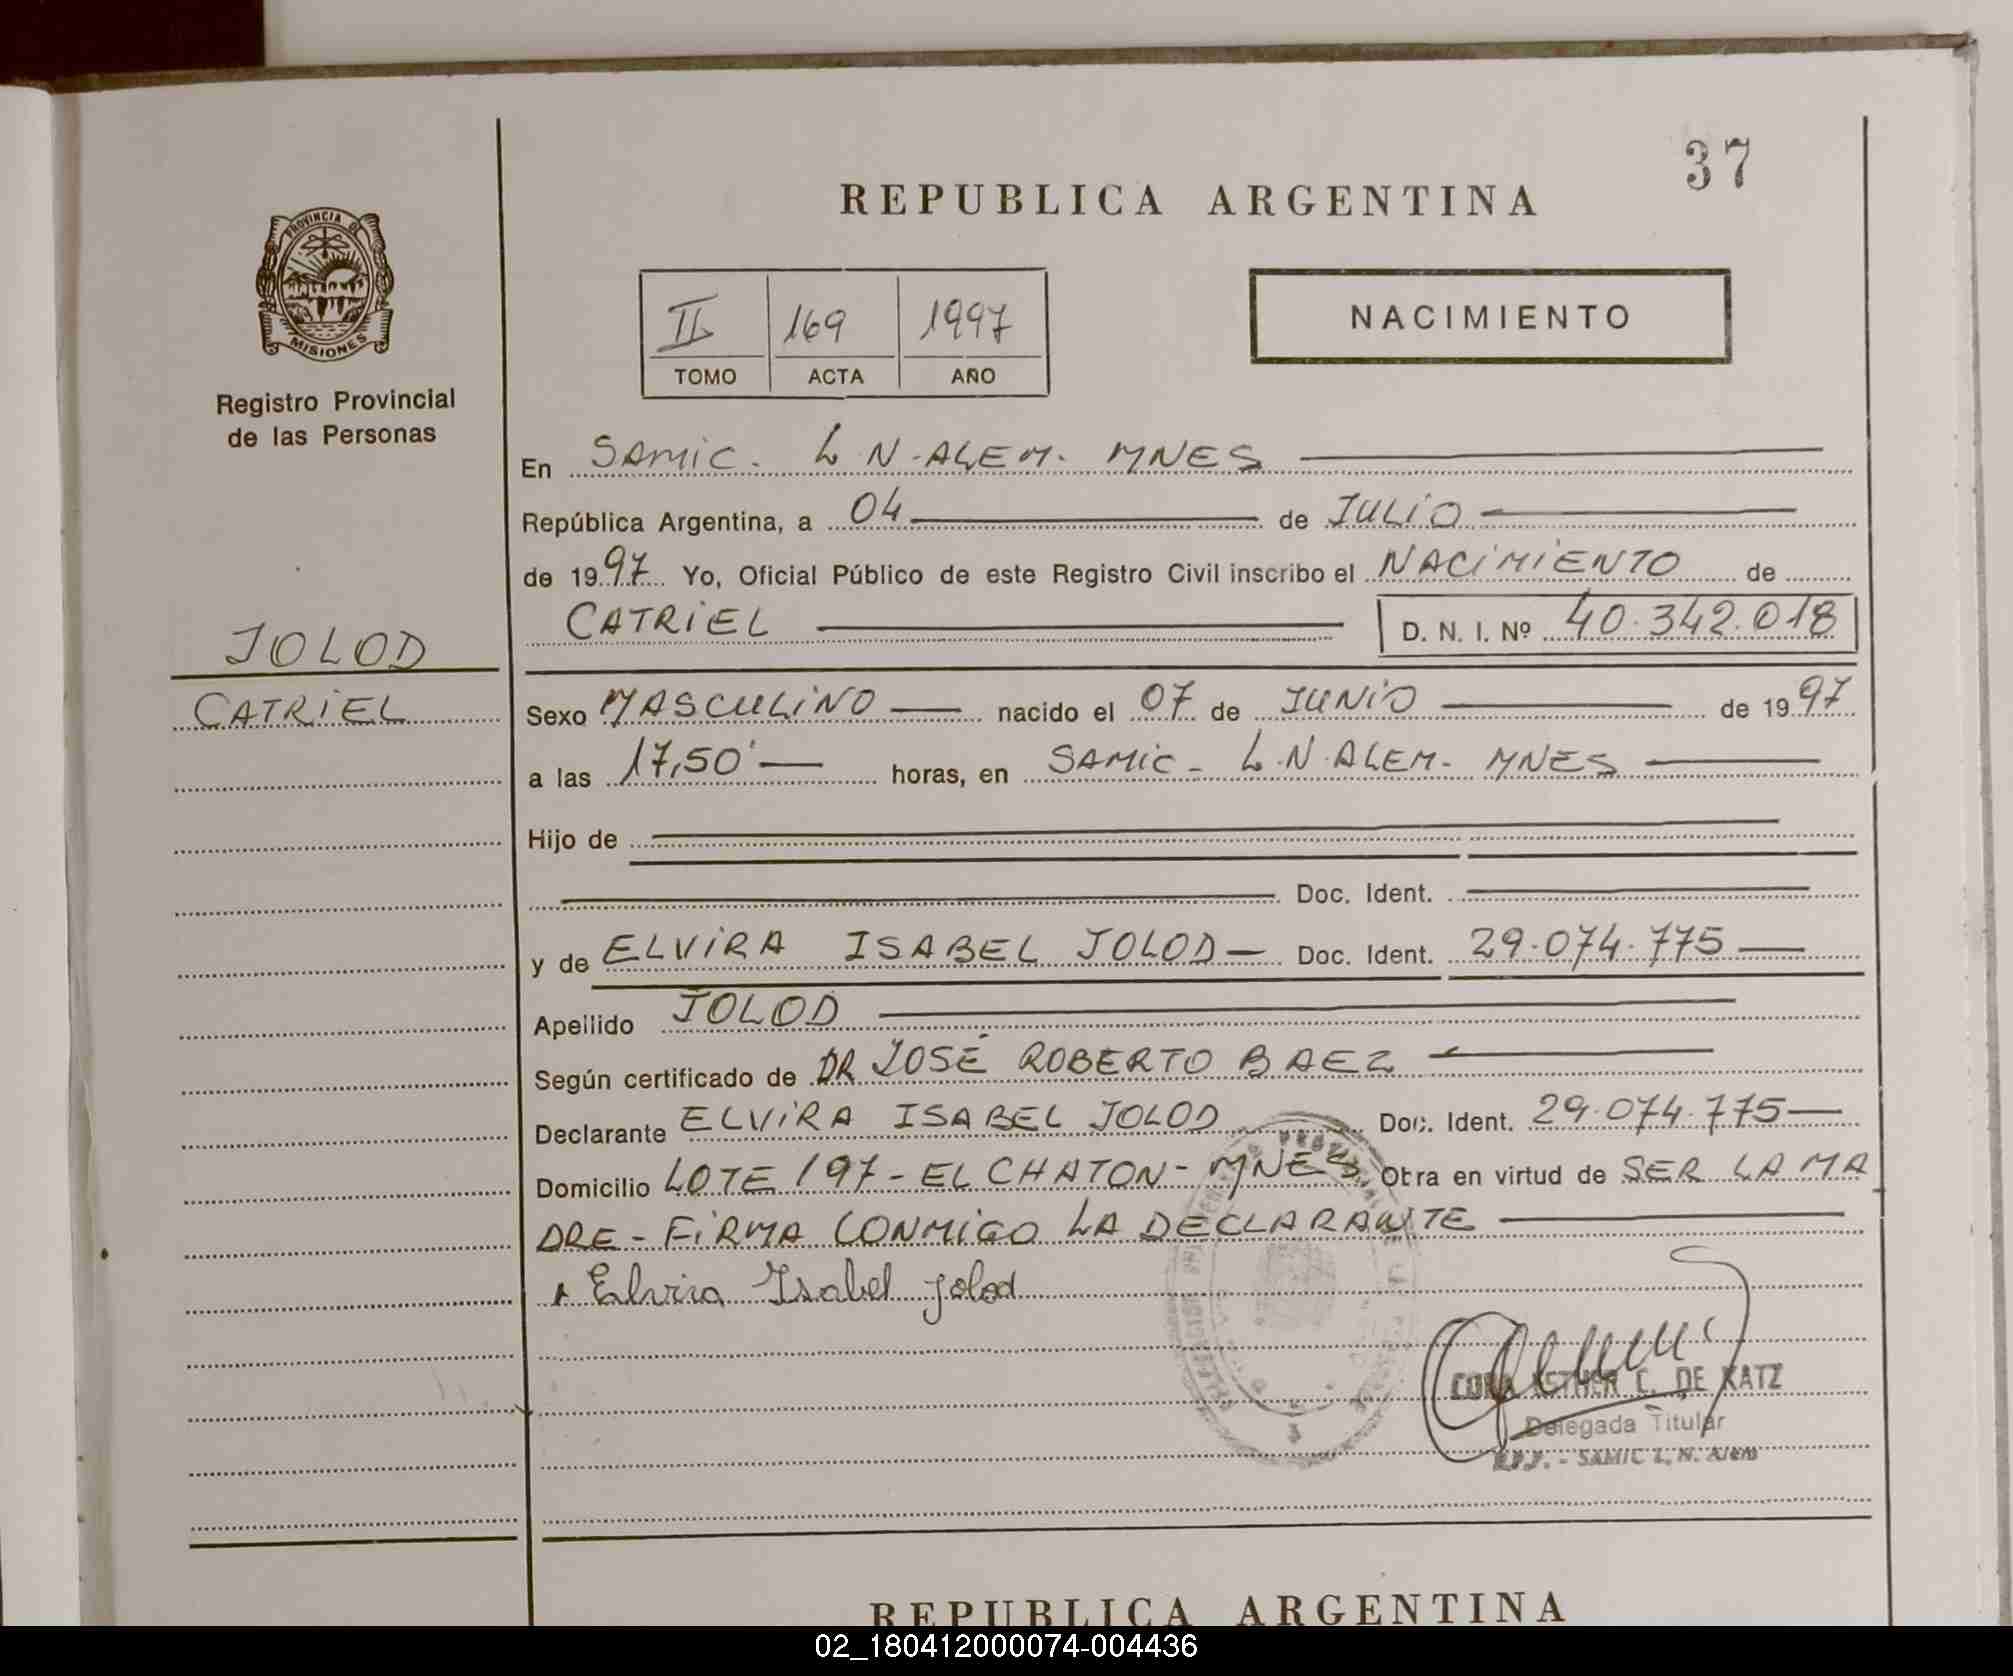 37
REPUBLICA ARGENTINA
PROVINCIA DE
MISIONES
Registro Provincial
de las Personas
II 169 1997
TOMO ACTA AÑO
NACIMIENTO
En SAMIC. L N. ALEM. MNES
República Argentina, a 04 de JULIO
de 1997 Yo, Oficial Público de este Registro Civil inscribo el NACIMIENTO de
CATRIEL D. N. I. Nº 40.342.018
JOLOD
CATRIEL
Sexo MASCULINO nacido el 07 de JUNIO de 1997
a las 17,50' horas, en SAMIC - L.N.ALEM. MNES
Hijo de
Doc. Ident.
y de ELVIRA ISABEL JOLOD Doc. Ident. 29.074.775
Apellido JOLOD
Según certificado de DR JOSÉ ROBERTO BAEZ
Declarante ELVIRA ISABEL JOLOD Doc. Ident. 29.074.775
Domicilio LOTE 197 - EL CHATON - MNES Obra en virtud de SER LA MA
DRE - FIRMA CONMIGO LA DECLARANTE
Elvira Isabel Jolod
ESTHER C. DE KATZ
Delegada Titular
SAMIC L. N. Alem
REPUBLICA ARGENTINA
02_180412000074-004436